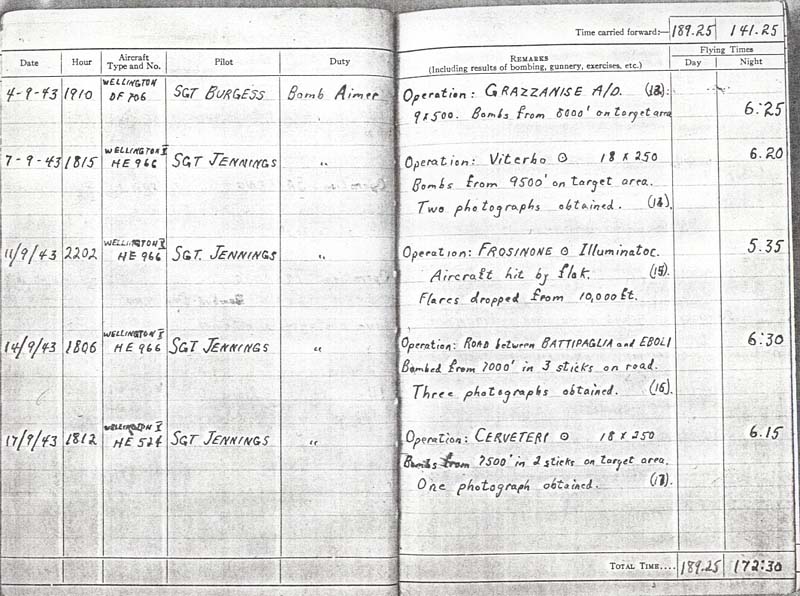 Time carried forward:— 189.25 141.25
Date Hour Aircraft Type and No. Pilot Duty REMARKS (Including results of bombing, gunnery, exercises, etc.) Flying Times Day Night
4-9-43 1910 WELLINGTON DF 706 SGT BURGESS Bomb Aimer Operation: GRAZZANISE A/D. (13):
9x500. Bombs from 8000' on target area 6:25
7-9-43 1815 WELLINGTON X HE 966 SGT JENNINGS " Operation: Viterbo ⊙ 18 x 250 6.20
Bombs from 9500' on target area.
Two photographs obtained. (14).
11/9/43 2202 WELLINGTON X HE 966 SGT. JENNINGS " Operation: FROSINONE ⊙ Illuminator. 5.35
Aircraft hit by flak. (15).
Flares dropped from 10,000 ft.
14/9/43 1806 WELLINGTON X HE 966 SGT JENNINGS " Operation: ROAD between BATTIPAGLIA and EBOLI 6:30
Bombed from 7000' in 3 sticks on road.
Three photographs obtained. (16)
17/9/43 1812 WELLINGTON X HE 524 SGT JENNINGS " Operation: CERVETERI ⊙ 18 x 250 6.15
Bombs from 7500' in 2 sticks on target area.
One photograph obtained. (17)
TOTAL TIME.... 189.25 172:30